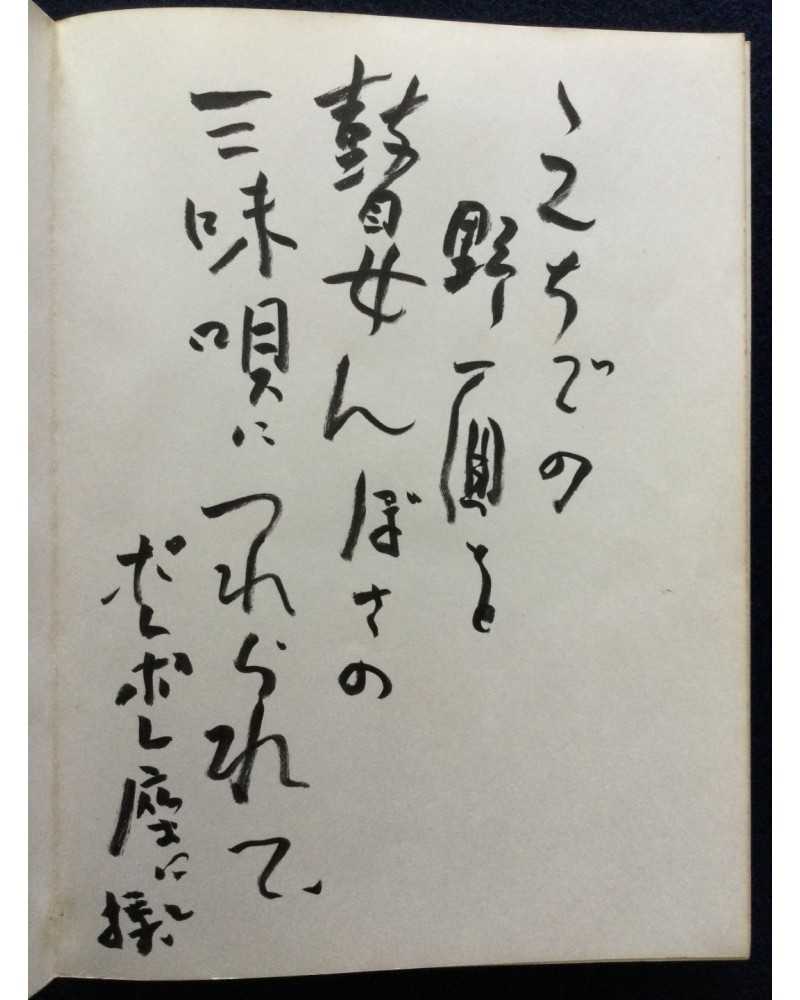 えちごの
野面を
瞽女んぼさの
三味唄につれられて
ポレポレ座にて